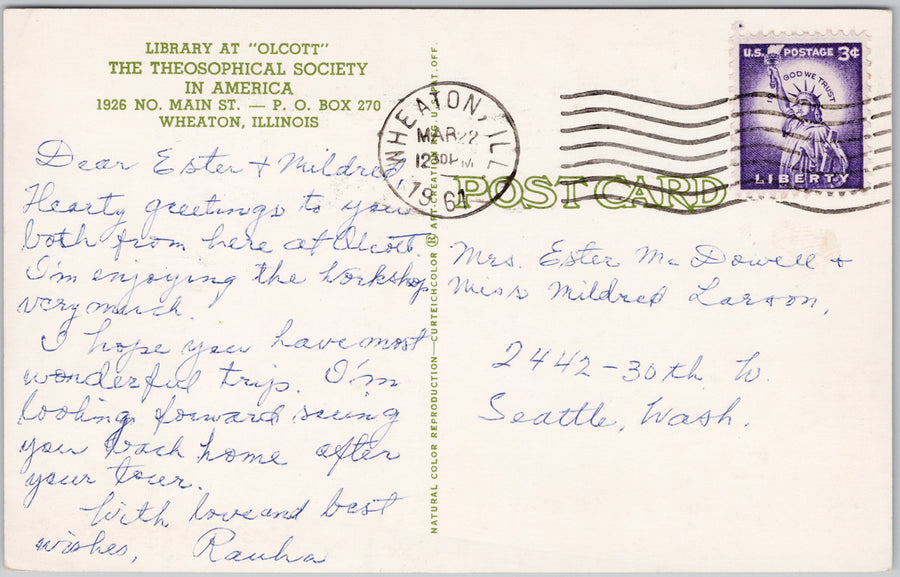 LIBRARY AT "OLCOTT"
THE THEOSOPHICAL SOCIETY
IN AMERICA
1926 NO. MAIN ST. — P. O. BOX 270
WHEATON, ILLINOIS
Dear Ester + Mildred
Hearty greetings to you
both from here at Olcott.
I'm enjoying the workshop
very much.
I hope you have most
wonderful trip. I'm
looking forward seeing
you back home after
your tour.
With love and best
wishes, Rauha
NATURAL COLOR REPRODUCTION—CURTEICHCOLOR ® ART-CREATION U.S. PAT. OFF.
WHEATON, ILL
MAR 22
12 30 PM
1961
U.S. POSTAGE 3¢
IN GOD WE TRUST
LIBERTY
POST CARD
Mrs. Ester McDowell +
Miss Mildred Larson,
2442-30th W.
Seattle, Wash.